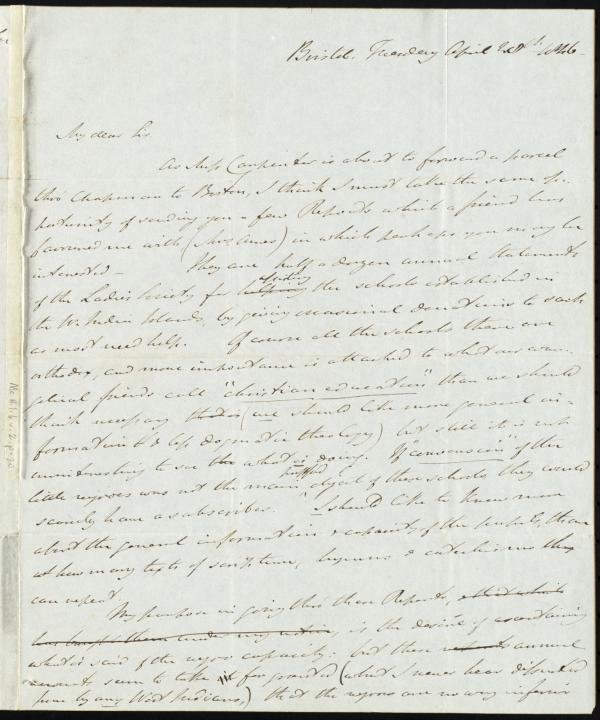 Bristol. Tuesday April 28th 1846
My dear Sir
As Miss Carpenter is about to forward a parcel
thro' Chapman to Boston, I think I must take the same op-
portunity of sending you a few Reports which a friend has
favoured me with (Mrs Ames) in which perhaps you may be
interested — They are half a dozen annual Statements
of the Ladies Society for helping aiding the schools established in
the W. Indian Islands, by giving occasional donations to such
as most need help. Of course all the schools there are
orthodox, and more importance is attached to what our evan-
gelical friends call "christian education" than we should
think necessary that is (we should like more general in-
formation & less dogmatic theology) but still it is not
uninteresting to see the what is doing. If "conversion" of the
little negroes was not the main object of these schools they would
scarcely have a subscriber. I should like to know more
about the general information & capacity of the pupils, than
at how many texts of scripture, hymns & catechisms they
can repeat.
My purpose in giving thro' these Reports, & that which
, is the desire of ascertaining
what is said of the negro capacity: but these reports annual
accounts seem to take it for granted (what I never hear disputed
here by any West Indians,) that the negroes are no way inferior